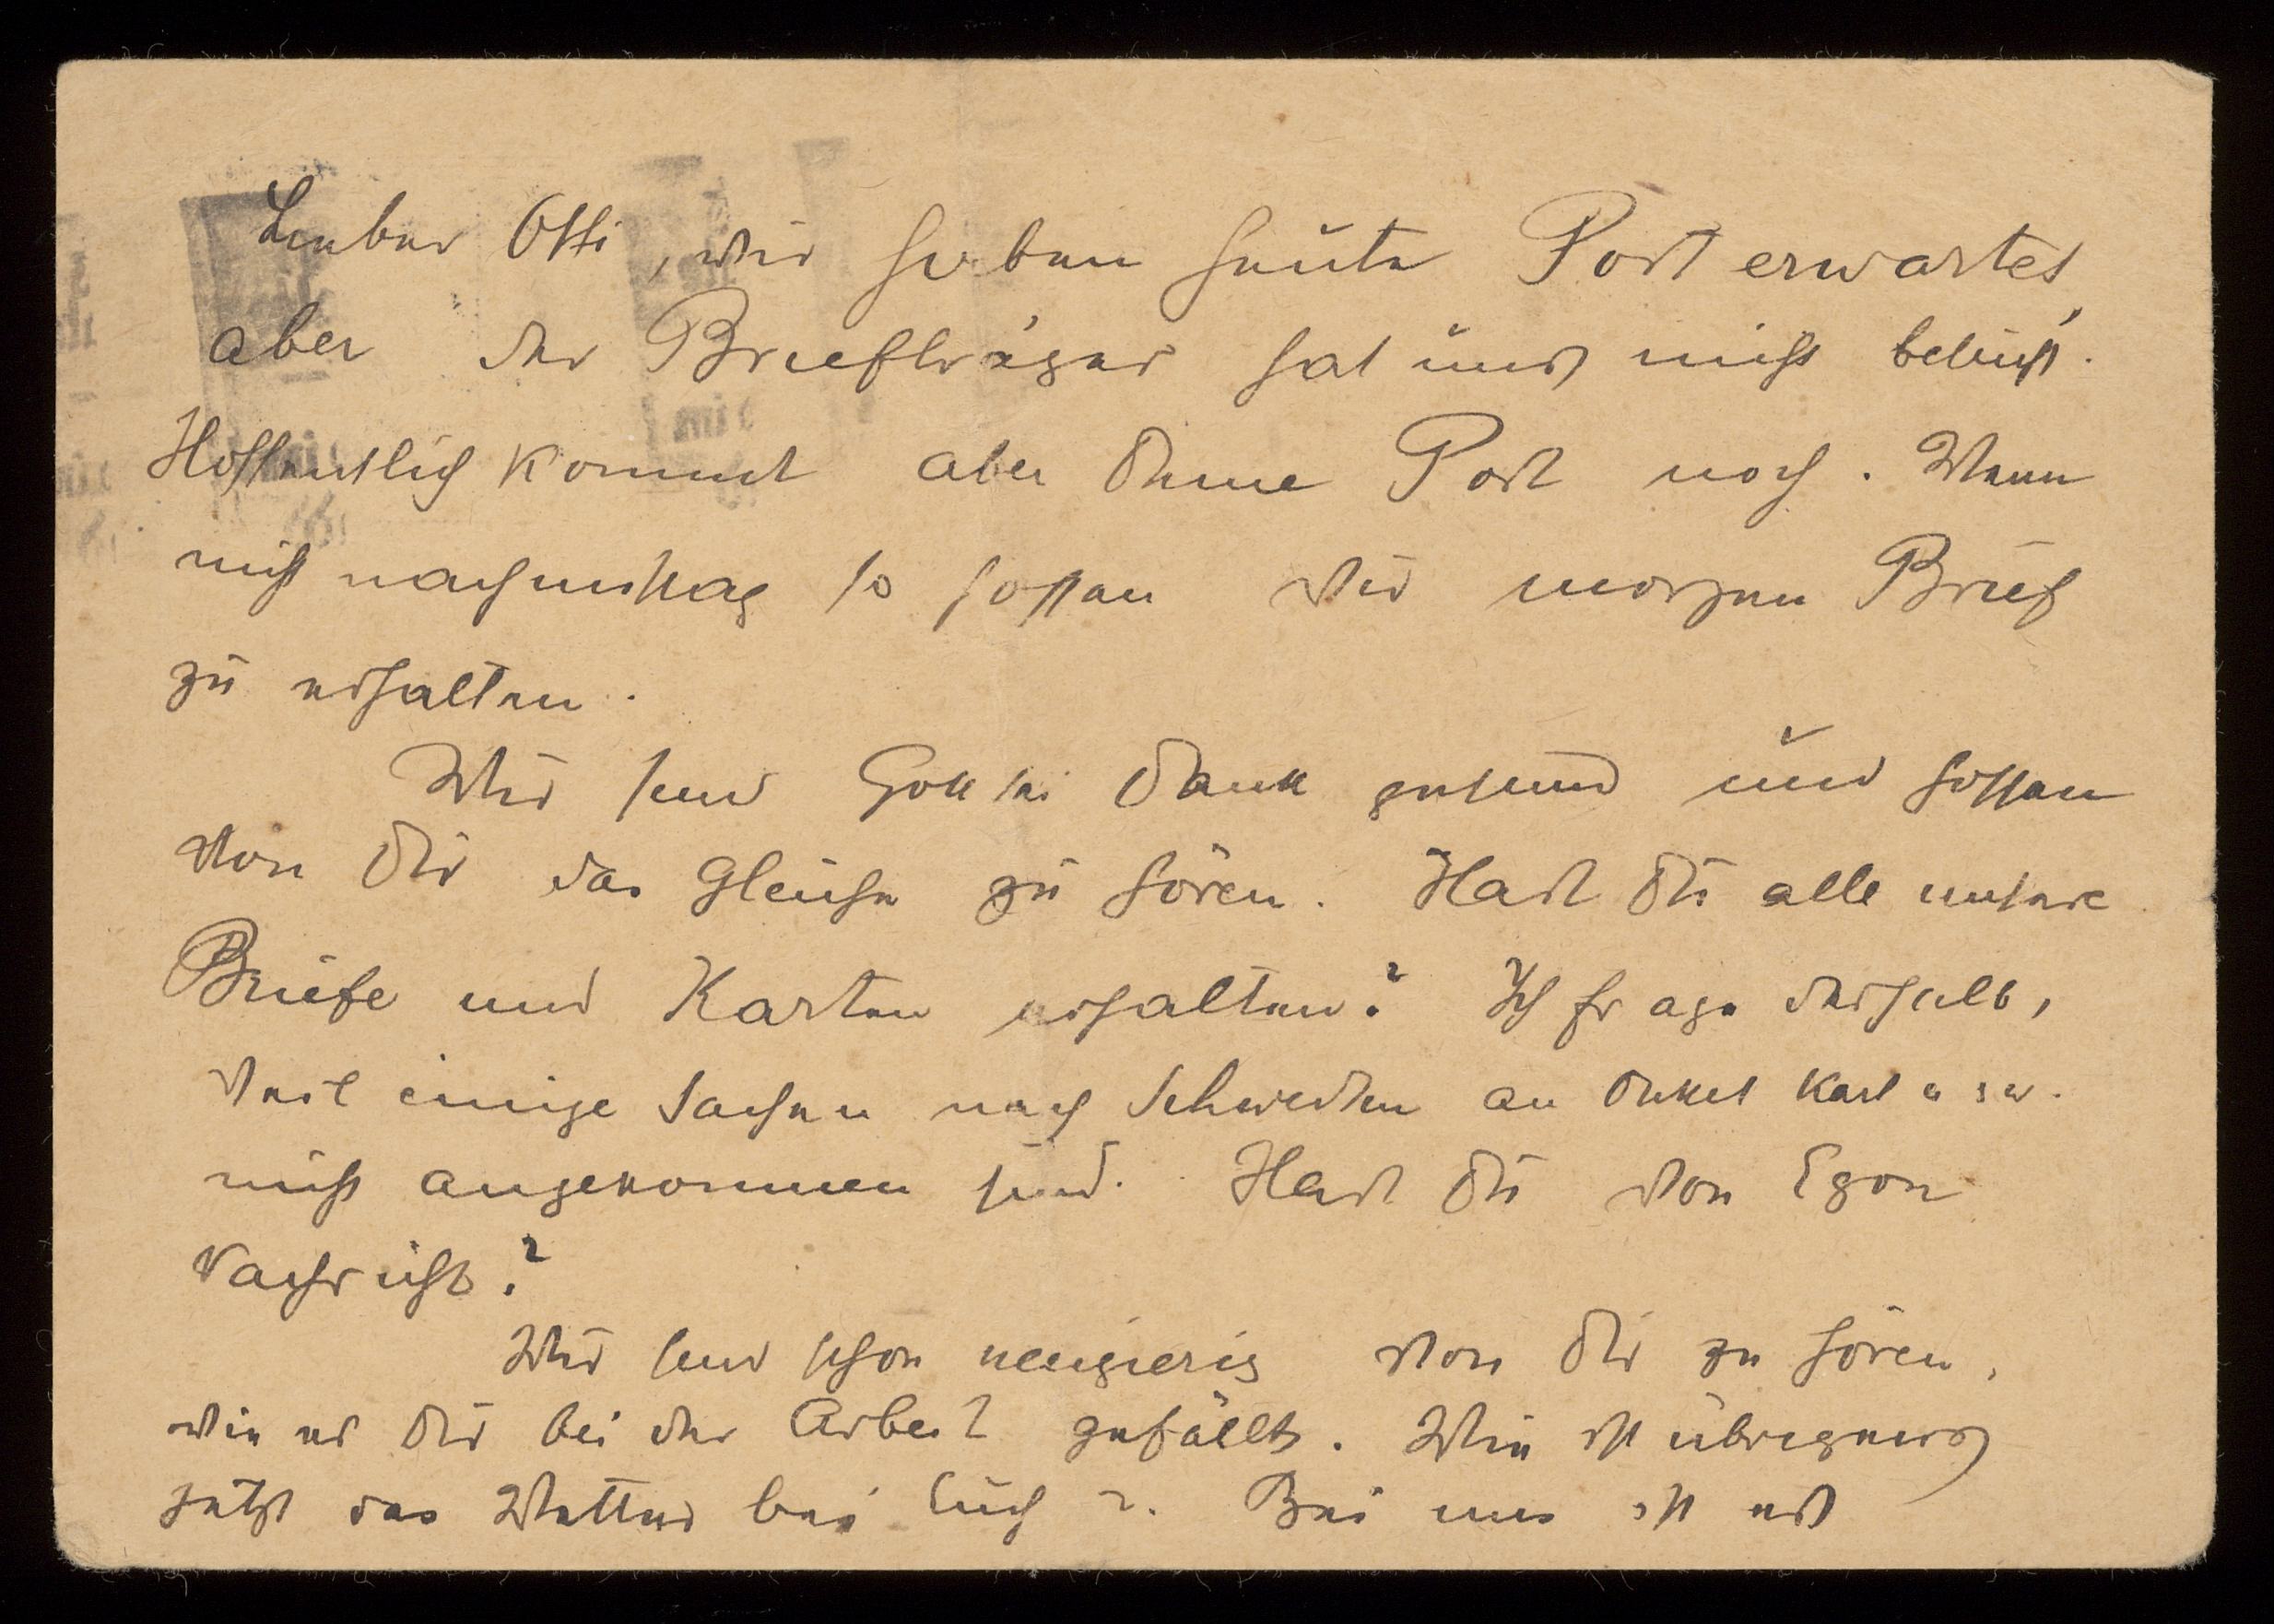 Lieber Otti, wir haben heute Post erwartet,
aber der Briefträger hat uns nicht besucht.
Hoffentlich kommt aber Deine Post noch. Wenn
nicht nachmittag so hoffen wir morgen Brief
zu erhalten.
Wir sind Gott sei Dank gesund und hoffen
von Dir das gleiche zu hören. Hast Du alle unsere
Briefe und Karten erhalten? Ich frage deshalb,
weil einige Sachen nach Schweden an Onkel Karl usw.
nicht angekommen sind. Hast Du von Egon
Nachricht?
Wir sind schon neugierig von Dir zu hören,
wie es Dir bei der Arbeit gefällt. Wie ist übrigens
jetzt das Wetter bei Euch?. Bei uns ist es